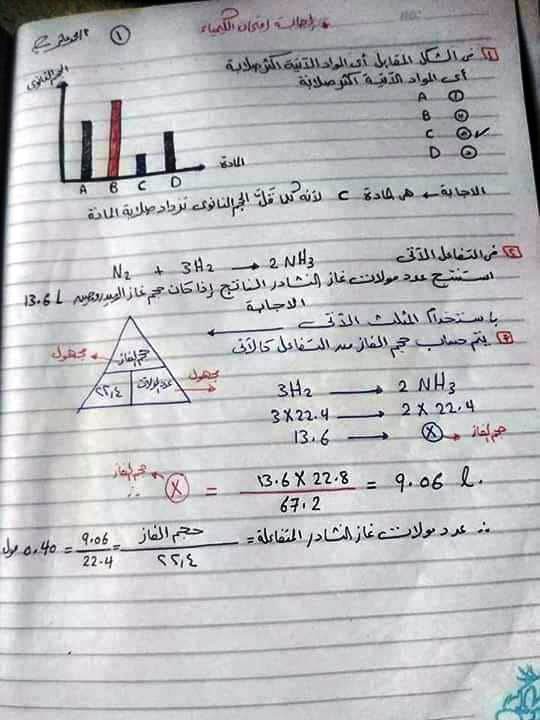 إجابة امتحان الكيمياء
①
١ فى الشكل المقابل أى المواد التقنية اكثر صلابة
أى المواد التقنية اكثر صلابة
A
B
C ✓
D
المادة
A B C D
الاجابة ← هى مادة C لأنه كلما قلَّ الحجم النانوى تزداد صلابة المادة
٢ فى التفاعل الآتى
N2 + 3H2 → 2 NH3
استنتج عدد مولات غاز النشادر الناتج إذا كان حجم غاز الهيدروجين 13.6 L
الاجابة
باستخدام المثلث الآتى
يتم حساب حجم الغاز من التفاعل كالآتى
مجهول
حجم الغاز
٢٢,٤ عدد المولات
مجهول
3H2 → 2 NH3
3 X 22.4 → 2 X 22.4
13.6 → X ← حجم الغاز
حجم الغاز
X = 13.6 X 22.8 / 67.2 = 9.06 l.
∴ عدد مولات غاز النشادر المتفاعلة = حجم الغاز / ٢٢,٤ = 9.06 / 22.4 = 0.40 مول